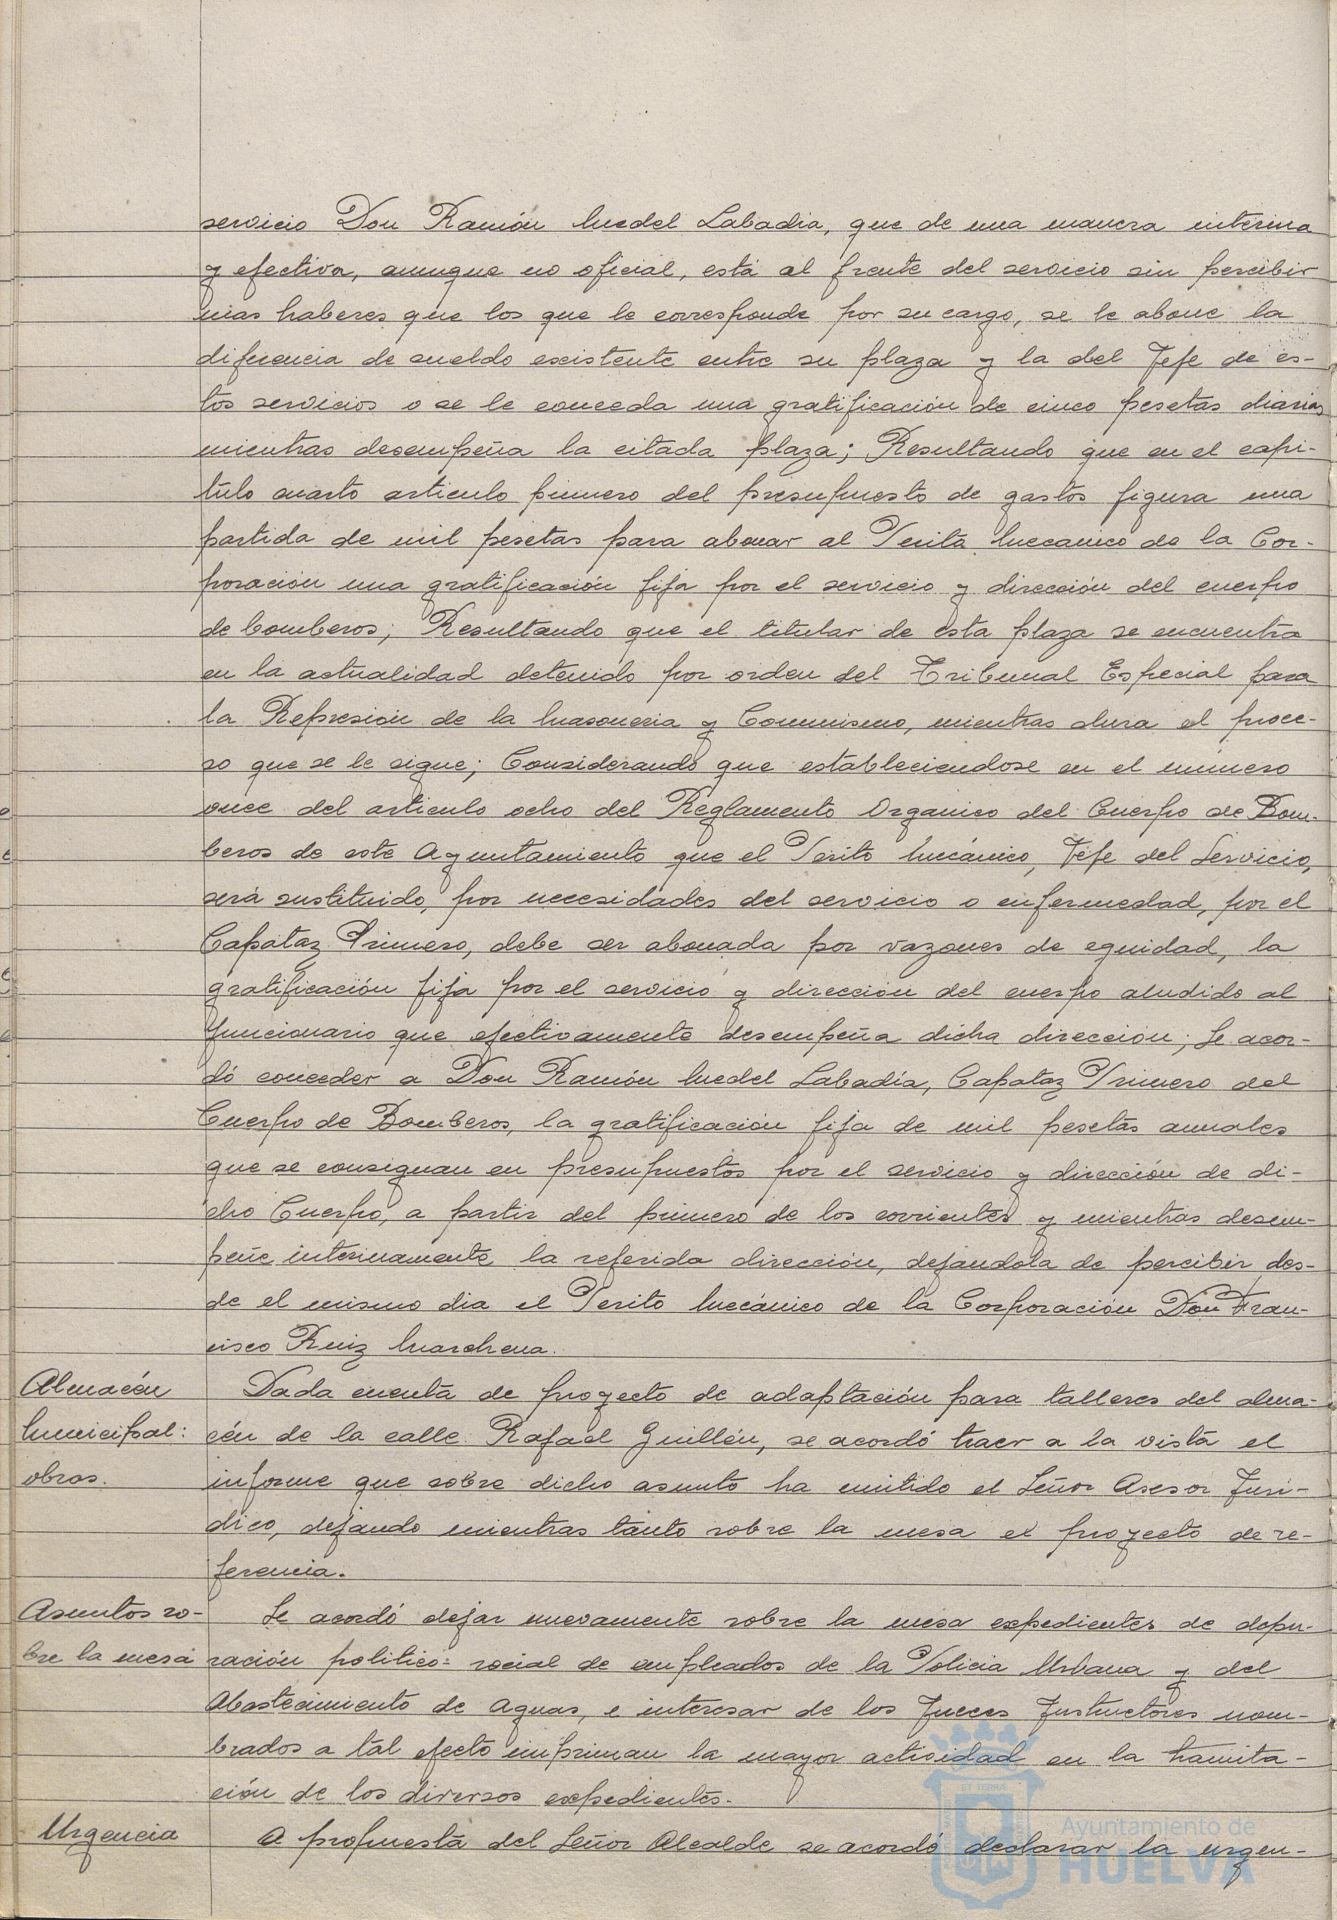 servicio Don Ramón Medel Labadia, que de una manera interina
y efectiva, aunque no oficial, está al frente del servicio sin percibir
mas haberes que los que le corresponde por su cargo, se le abone la
diferencia de sueldo escistente entre su plaza y la del Jefe de es-
tos servicios o se le conceda una gratificación de cinco pesetas diarias
mientras desempeña la citada plaza; Resultando que en el capi-
tulo cuarto articulo primero del presupuesto de gastos figura una
partida de mil pesetas para abonar al Perito Mecanico de la Cor-
poración una gratificación fija por el servicio y dirección del cuerpo
de bomberos; Resultando que el titular de esta plaza se encuentra
en la actualidad detenido por orden del Tribunal Especial para
la Represión de la Masoneria y Comunismo, mientras dura el proce-
so que se le sigue; Considerando que estableciendose en el número
once del articulo ocho del Reglamento Organico del Cuerpo de Bom-
beros de este Ayuntamiento que el Perito Mecánico, Jefe del Servicio,
será sustituido, por necesidades del servicio o enfermedad, por el
Capataz Primero, debe ser abonada por razones de equidad, la
gratificación fija por el servicio y dirección del cuerpo aludido al
funcionario que efectivamente desempeña dicha dirección; Se acor-
dó conceder a Don Ramón Medel Labadía, Capataz Primero del
Cuerpo de Bomberos, la gratificación fija de mil pesetas anuales
que se consignan en presupuestos por el servicio y dirección de di-
cho Cuerpo, a partir del primero de los corrientes y mientras desem-
peñe interinamente la referida dirección, dejándola de percibir des-
de el mismo dia el Perito Mecánico de la Corporación Don Fran-
cisco Ruiz Marchena.
Almacén
Municipal:
obras.
Dada cuenta de proyecto de adaptación para talleres del alma-
cén de la calle Rafael Guillén, se acordó traer a la vista el
informe que sobre dicho asunto ha emitido el Señor Asesor Juri-
dico, dejando mientras tanto sobre la mesa el proyecto de re-
ferencia.
Asuntos so-
bre la mesa
Se acordó dejar nuevamente sobre la mesa expedientes de depu-
ración politico-social de empleados de la Policia Urbana y del
Abastecimiento de Aguas, e interesar de los Jueces Instructores nom-
brados a tal efecto impriman la mayor actividad en la tramita-
ción de los diversos expedientes.
Urgencia
A propuesta del Señor Alcalde se acordó declarar la urgen-
Ayuntamiento de
HUELVA